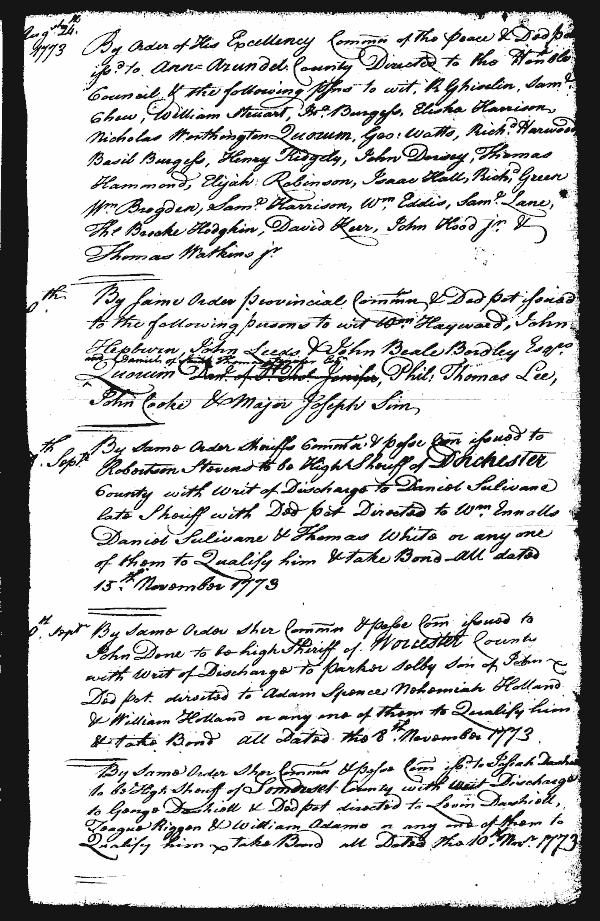 Augst 24th
1773
By Order of His Excellency Common of the Peace & Ded Pot
issd to Ann=Arundel County Directed to the Honble
Council, & the following psns to wit, R Ghiselin, Saml
Chew, William Steuart, Jno Burgess, Elisha Harrison,
Nicholas Worthington Quorum, Geo: Watts, Richd Harwood
Basil Burgess, Henry Ridgely, John Dorsey, Thomas
Hammond, Elijah Robinson, Isaac Hall, Richd Green
Wm Brogden, Saml Harrison, Wm Eddis, Saml Lane,
Ths Brooke Hodgkin, David Kerr, John Hood jr &
Thomas Watkins jr
th
By same Order Provincial Common & Ded Pot issued
to the following persons to wit Wm Hayward, John
Hepburn, John Leeds & John Beale Bordley Esqrs
and Daniel of
Quorum Danl. of St Thos Jenifer, Phil: Thomas Lee,
John Cooke & Major Joseph Sim
th Septr
By same Order Sheriffs Common & posse Com issued to
Robertson Stevens to be High Sheriff of Dorchester
County with Writ of Discharge to Daniel Sulivane
late Sheriff with Ded pot Directed to Wm Ennalls
Daniel Sulivane & Thomas White or any one
of them to Qualify him & take Bond All dated
15th November 1773
th Septr
By same Order Sher Common & posse Com issued to
John Done to be high Sheriff of Worcester County
with Writ of Discharge to Parker Selby son of John
Ded pot. directed to Adam Spence Nehemiah Holland
& William Holland or any one of them to Qualify him
& take Bond all Dated the 8th November 1773
By same Order Sher Common & posse Com issd to Josiah Dashiell
to be High Sheriff of Somerset County with Writ Discharge
to George Dashiell & Ded pot directed to Levin Dashiell,
Teague Riggen & William Adams or any one of them to
Qualify him & take Bond all Dated the 10th Novr 1773